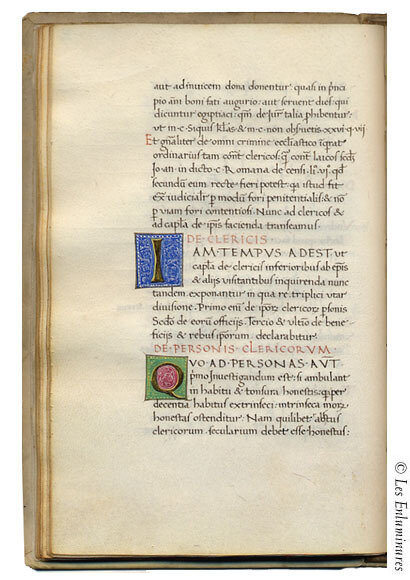 aut adinuicem dona donentur quasi in pͥnci
pio añi boni fati augurio: aut seruent dies qui
dicuntur egiptiaci: qm̄ de Jur̄ talia ꝓhibentur
ut in c. Siquis klas & in c. non obẜuetis .xxvi. q. vii
Et gnaliter de omni crimine ecclīastico
ordinarius tam cont clericos qͣ cont laicos
Jo. an. in dicto c. Romana de censi. li.º vi.º
secundum eum recte fieri potest: qa istud fit
ex iudiciali ꝑ modum fori penitentialis & non
ꝑ uiam fori contentiosi. Nunc ad clericos &
ad capla de ipis facienda transeamus.
DE CLERICIS
IAM TEMPUS ADEST ut
capla de clericis inferioribus ab epis
& alijs uisitantibus inquirenda nunc
tandem exponantur in qua re triplici utar
diuisione. Primo eni de ipoꝝ clericoꝝ psonis
Scdo de eoru officijs. Tercio & ultio de bene
ficijs & rebus ipsorum declarabitur
DE PERSONIS CLERICORVM
QVO AD PERSONAS AVT
pͥmo Inuestigandum est: si ambulant
in habitu & tonsura honestis: qꝫ per
decentia habitus extrinseci: intrinseca moꝝ
honestas ostenditur. Nam quilibet
clericorum secularium debet esse honestus:
© Les Enluminures